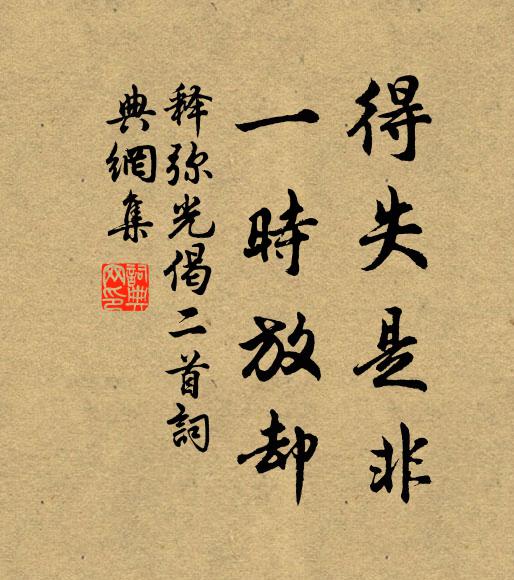 得失是非
一時放却
释弥光偈二首詞
典網集
詞典
网印